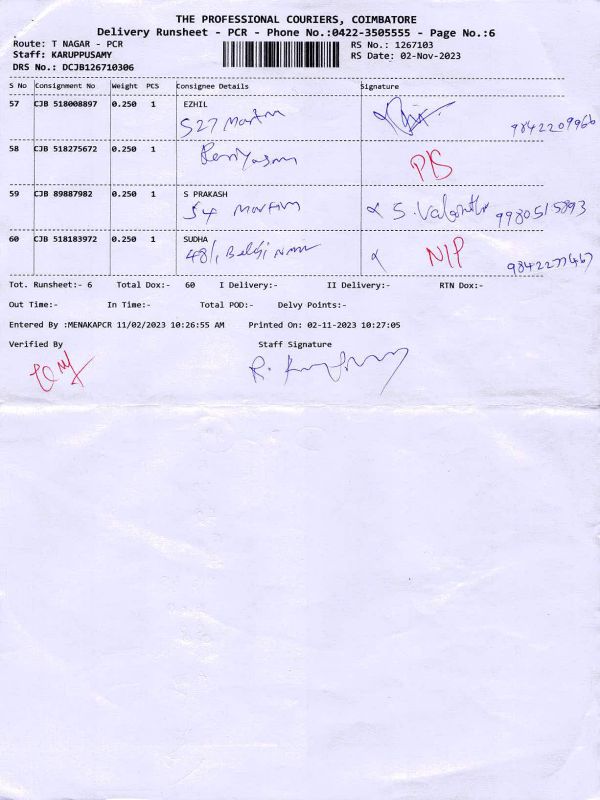 THE PROFESSIONAL COURIERS, COIMBATORE
Delivery Runsheet - PCR - Phone No.:0422-3505555 - Page No.:6
Route: T NAGAR - PCR
RS No.: 1267103
Staff: KARUPPUSAMY
RS Date: 02-Nov-2023
DRS No.: DCJB126710306
S No Consignment No Weight PCS Consignee Details Signature
57 CJB 518008897 0.250 1 EZHIL
527 9842209966
58 CJB 518275672 0.250 1
59 CJB 89887982 0.250 1 S PRAKASH
54 S. 9980515893
60 CJB 518183972 0.250 1 SUDHA
48/1, N/P
Tot. Runsheet:- 6 Total Dox:- 60 I Delivery:- II Delivery:- RTN Dox:-
Out Time:- In Time:- Total POD:- Delvy Points:-
Entered By :MENAKAPCR 11/02/2023 10:26:55 AM Printed On: 02-11-2023 10:27:05
Verified By Staff Signature